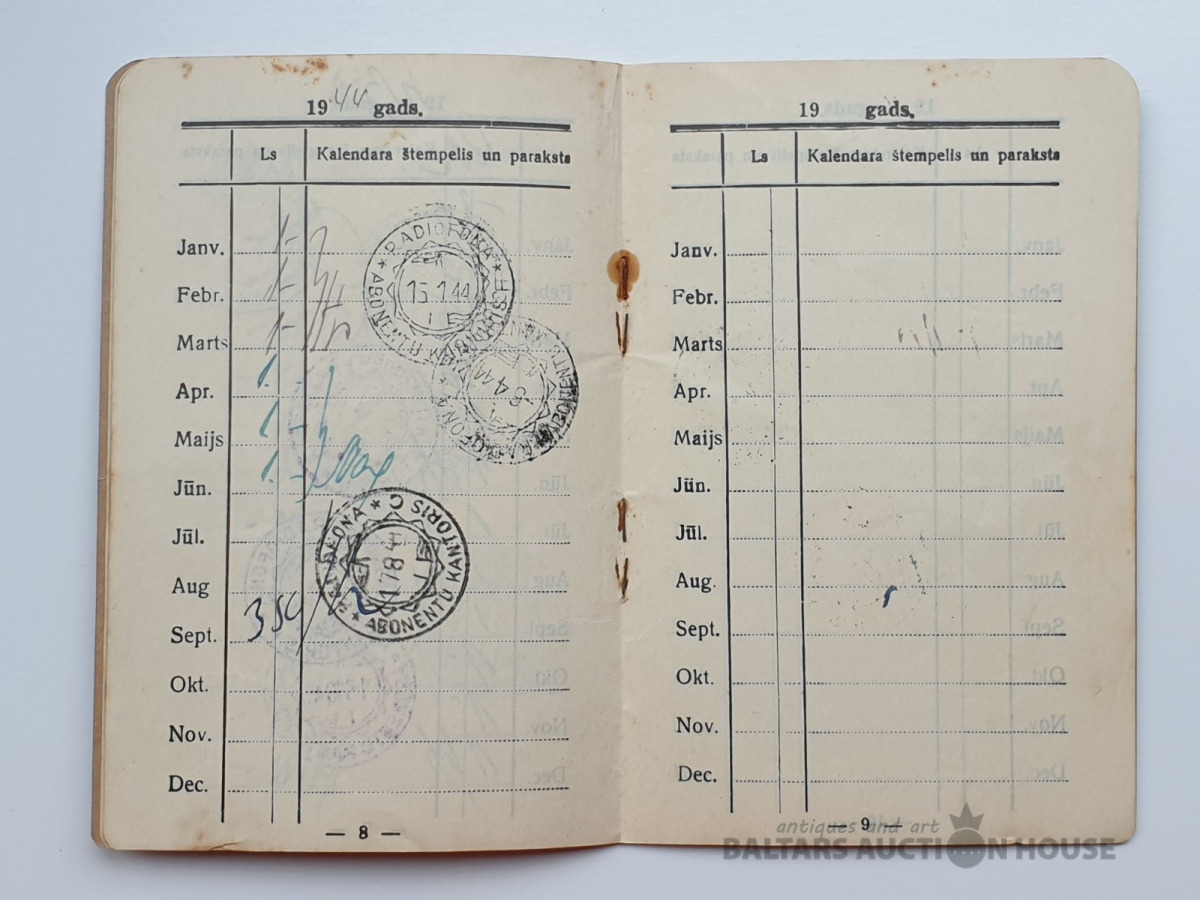 1944 gads.
Ls Kalendara štempelis un paraksts
Janv. 1-
Febr. 1-
Marts 1-
Apr. 1.-
Maijs 1.-
Jūn. 1.-
Jūl.
Aug
Sept.
Okt.
Nov.
Dec.
RADIOFONA * ABONENTŪ KANTORIS
15.1.44
RADIOFONA * ABONENTŪ KANTORIS
4 44
RADIOFONA * ABONENTŪ KANTORIS C
17 8 44
— 8 —
19 gads.
Ls Kalendara štempelis un paraksts
Janv.
Febr.
Marts
Apr.
Maijs
Jūn.
Jūl.
Aug.
Sept.
Okt.
Nov.
Dec.
— 9 —
antiques and art
BALTARS AUCTION HOUSE